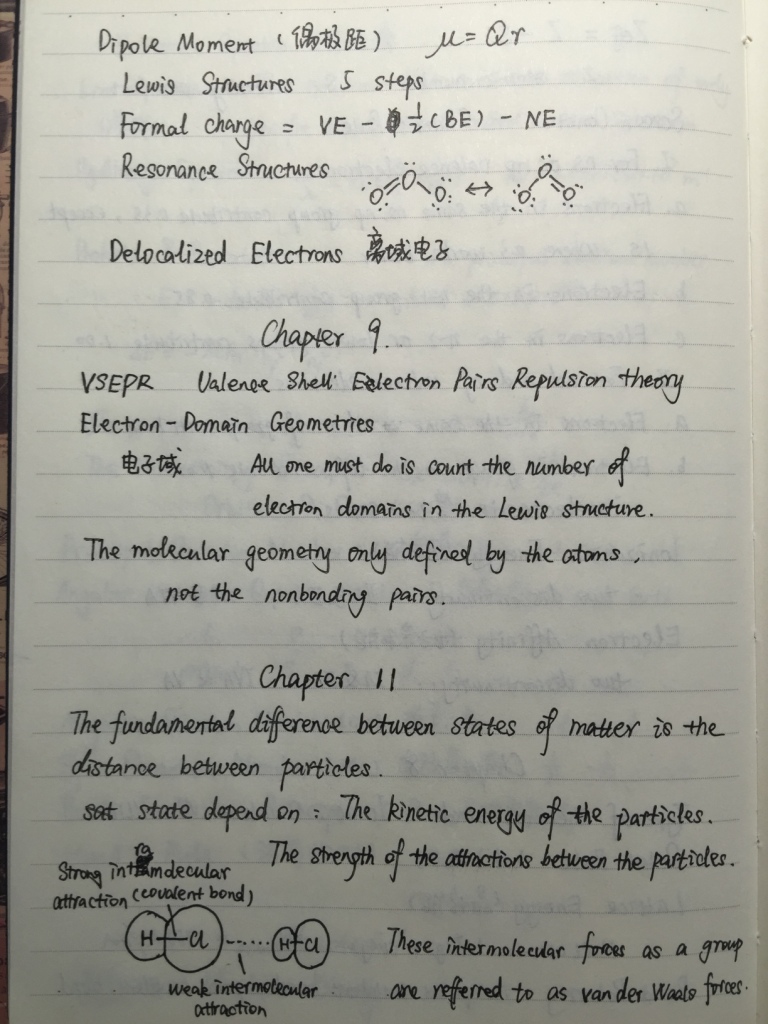 Dipole Moment (偶极距) μ=Qr
Lewis Structures 5 steps
Formal charge = VE - ½ (BE) - NE
Resonance Structures
O=O-O ↔ O-O=O
Delocalized Electrons 离域电子
Chapter 9.
VSEPR Valence Shell Eelectron Pairs Repulsion theory
Electron-Domain Geometries
电子域 All one must do is count the number of
electron domains in the Lewis structure.
The molecular geometry only defined by the atoms,
not the nonbonding pairs.
Chapter 11
The fundamental difference between states of matter is the
distance between particles.
sat state depend on: The kinetic energy of the particles.
The strength of the attractions between the particles.
Strong intramolecular
attraction (covalent bond)
H-Cl ...... H-Cl
weak intermolecular
attraction
These intermolecular forces as a group
are refferred to as van der Waals forces.